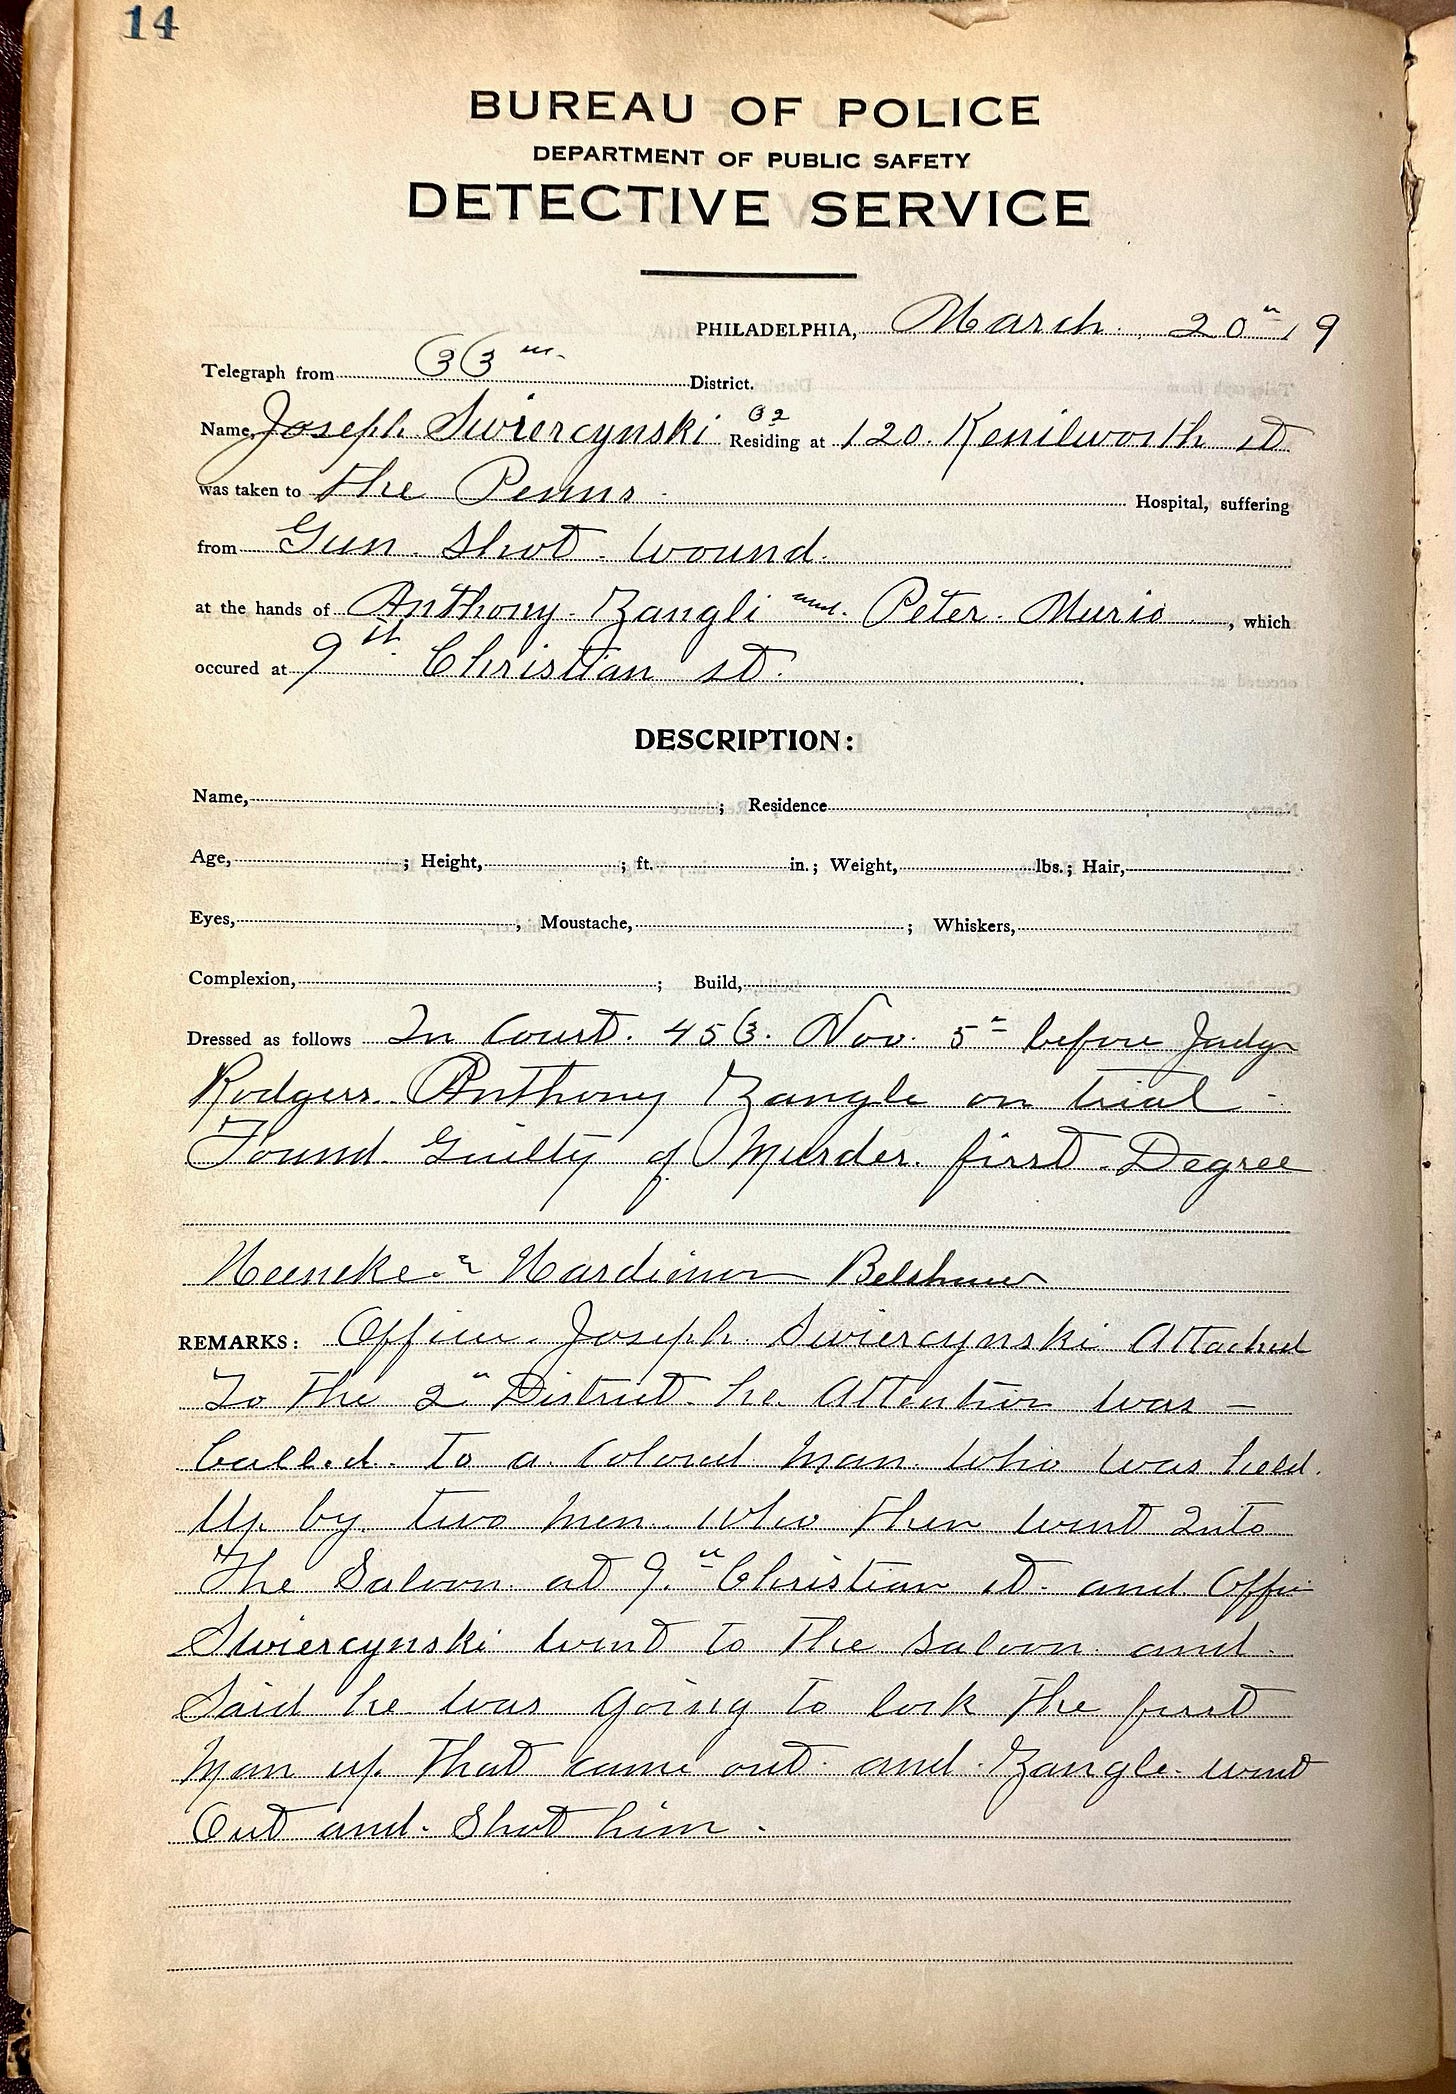 14
BUREAU OF POLICE
DEPARTMENT OF PUBLIC SAFETY
DETECTIVE SERVICE
PHILADELPHIA, March 20" 19
Telegraph from 33 District.
Name, Joseph Swiercynski 32 Residing at 120 Kenilworth st
was taken to the Penns Hospital, suffering
from Gun Shot wound.
at the hands of Anthony Zangli and Peter Murio, which
occured at 9th Christian st.
DESCRIPTION:
Name, ; Residence
Age, ; Height, ; ft. in.; Weight, lbs.; Hair,
Eyes, , Moustache, ; Whiskers,
Complexion, ; Build,
Dressed as follows In Court. 453. Nov. 5" before Judge
Rodgers. Anthony Zangle on trial
Found Guilty of Murder first Degree
& Belshaw
REMARKS: Officer Joseph Swiercynski Attached
To the 2" District he Attention was –
Called to a Colored Man who was held
Up by two Men who then went Into
The Saloon at 9" Christian st. and
Swiercynski went to the Saloon and
Said he was going to lock the first
Man up That came out and Zangle went
Out and Shot him.